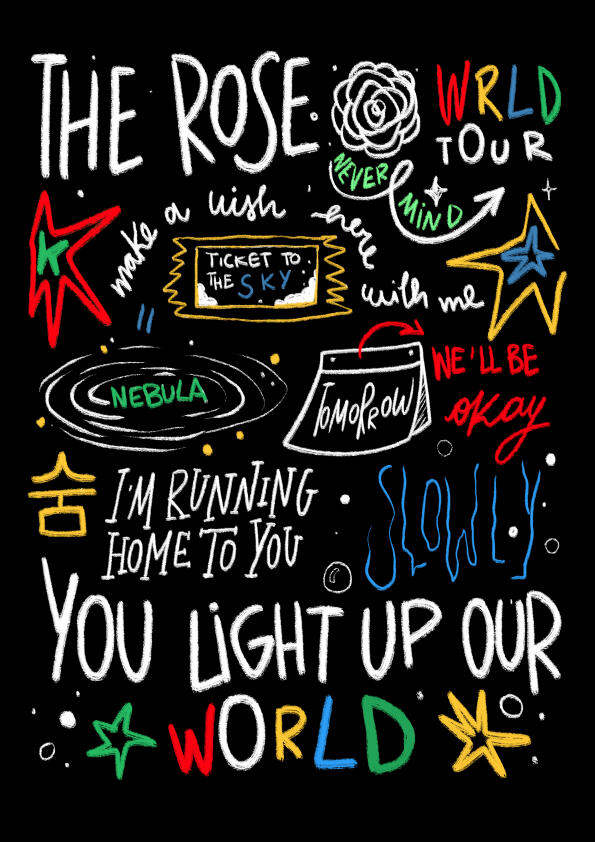 THE ROSE
WRLD
TOUR
NEVER
MiND
K
make a wish here
with me
TiCKET TO
THE SKY
NEBULA
TOMORROW
WE'LL BE
okay
숨
I'M RUNNING
HOME TO YOU
SLOWLY
YOU LiGHT UP OUR
WORLD